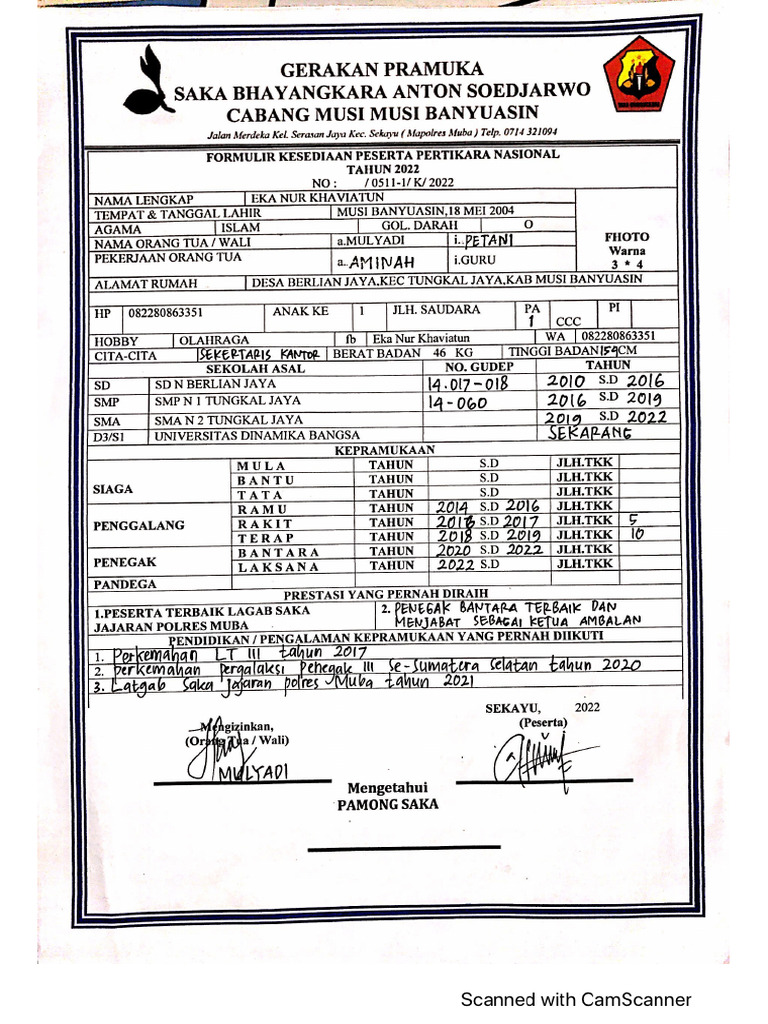 GERAKAN PRAMUKA
SAKA BHAYANGKARA ANTON SOEDJARWO
CABANG MUSI MUSI BANYUASIN
Jalan Merdeka Kel. Serasan Jaya Kec. Sekayu ( Mapolres Muba ) Telp. 0714 321094
FORMULIR KESEDIAAN PESERTA PERTIKARA NASIONAL
TAHUN 2022
NO : / 0511-1/ K/ 2022
NAMA LENGKAP EKA NUR KHAVIATUN
TEMPAT & TANGGAL LAHIR MUSI BANYUASIN,18 MEI 2004
AGAMA ISLAM GOL. DARAH O
NAMA ORANG TUA / WALI a.MULYADI i..PETANI
PEKERJAAN ORANG TUA a..AMINAH i.GURU
FHOTO
Warna
3 * 4
ALAMAT RUMAH DESA BERLIAN JAYA.KEC TUNGKAL JAYA,KAB MUSI BANYUASIN
HP 082280863351 ANAK KE 1 JLH. SAUDARA PA 1 CCC PI
HOBBY OLAHRAGA fb Eka Nur Khaviatun WA 082280863351
CITA-CITA SEKERTARIS KANTOR BERAT BADAN 46 KG TINGGI BADAN 159CM
SEKOLAH ASAL NO. GUDEP TAHUN
SD SD N BERLIAN JAYA 14.017-018 2010 S.D 2016
SMP SMP N 1 TUNGKAL JAYA 14-060 2016 S.D 2019
SMA SMA N 2 TUNGKAL JAYA 2019 S.D 2022
D3/S1 UNIVERSITAS DINAMIKA BANGSA SEKARANG
KEPRAMUKAAN
SIAGA MULA TAHUN S.D JLH.TKK
BANTU TAHUN S.D JLH.TKK
TATA TAHUN S.D JLH.TKK
PENGGALANG RAMU TAHUN 2014 S.D 2016 JLH.TKK
RAKIT TAHUN 2016 S.D 2017 JLH.TKK 5
TERAP TAHUN 2018 S.D 2019 JLH.TKK 10
PENEGAK BANTARA TAHUN 2020 S.D 2022 JLH.TKK
LAKSANA TAHUN 2022 S.D JLH.TKK
PANDEGA
PRESTASI YANG PERNAH DIRAIH
1.PESERTA TERBAIK LAGAB SAKA
JAJARAN POLRES MUBA
2. PENEGAK BANTARA TERBAIK DAN
MENJABAT SEBAGAI KETUA AMBALAN
PENDIDIKAN / PENGALAMAN KEPRAMUKAAN YANG PERNAH DIIKUTI
1. Perkemahan LT III tahun 2017
2. perkemahan pergalaksi Penegak III Se-Sumatera Selatan tahun 2020
3. Latgab Saka jajaran polres Muba tahun 2021
SEKAYU, 2022
Mengizinkan, (Peserta)
(Orang Tua / Wali)
MULYADI
Mengetahui
PAMONG SAKA
Scanned with CamScanner